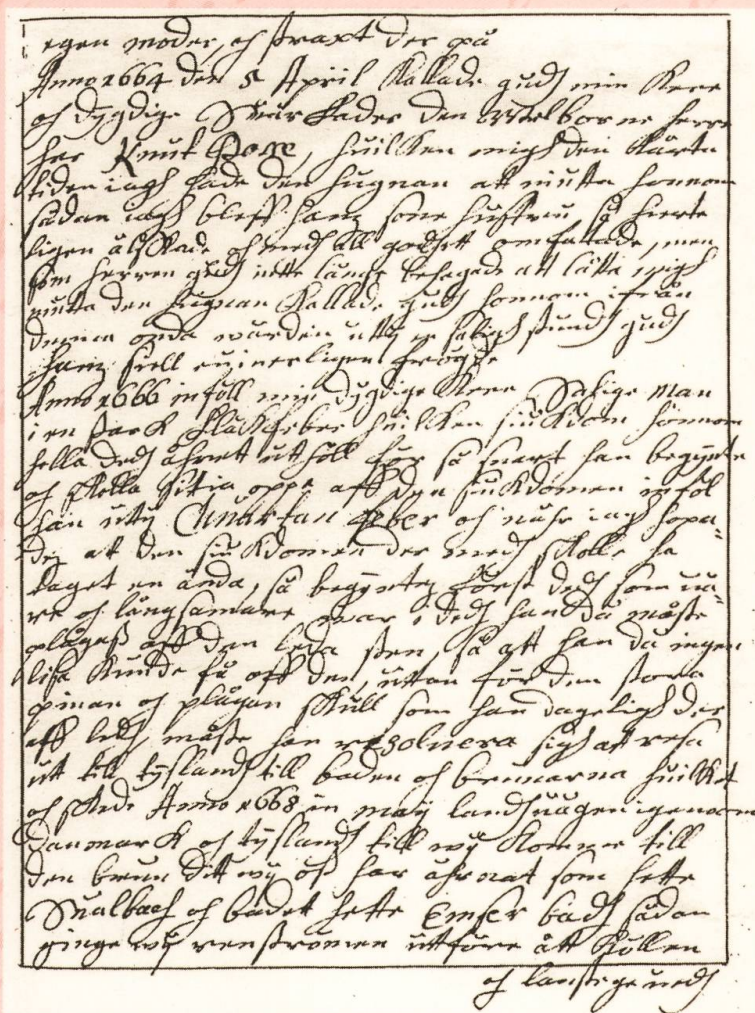 egen moder, och straxt der på
Anno 1664 den 5 April kallade gudh min kere
och dygdige Svärfader den welborne herre
her Knut Posse, huilken migh den korta
tiden iagh hade den hugnan att niutta honnom
sådan iagh bleff hans sons hustru, så hierte
ligen älskade och medh all godhett omfattade, men
som herren gudh intte länge behagade att låtta migh
niutta den hugnan kallade gudh honnom ifrån
denna onda wärden utty en saligh stundh gudh
hans siell ewinerligen frögde
Anno 1666 inföll min dygdige kere Salige man
i en stark fläckfeber huilken siukdom honnom
hella dedh åhrett uthöll för så snart han begynte
och skolla sittia oppe aff den siukdomen inföl
han uty Quartan feber och nähr iagh hopa-
des at den siukdomen der medh skolle ha
taget en ända, så begyntes först dedh som wa-
re och långsamare war i dedh han då måste
plågas aff den leda sten, så att han då ingen
lisa kunde få aff den, uttan för den stora
pinan och plågan skull som han dageligh der
aff ledh måste han resoluera sigh att resa
ut till tysland till baden och brunnarna huilket
och skede Anno 1668 in maij landsuägen igenom
danmark och tyslandh till wij komme till
den brun ditt wij oss har ährnat som hette
Sualbach och badet hette Emser badh sådan
ginge wij renströmen uttföre ått Köllen
och landstige wedh